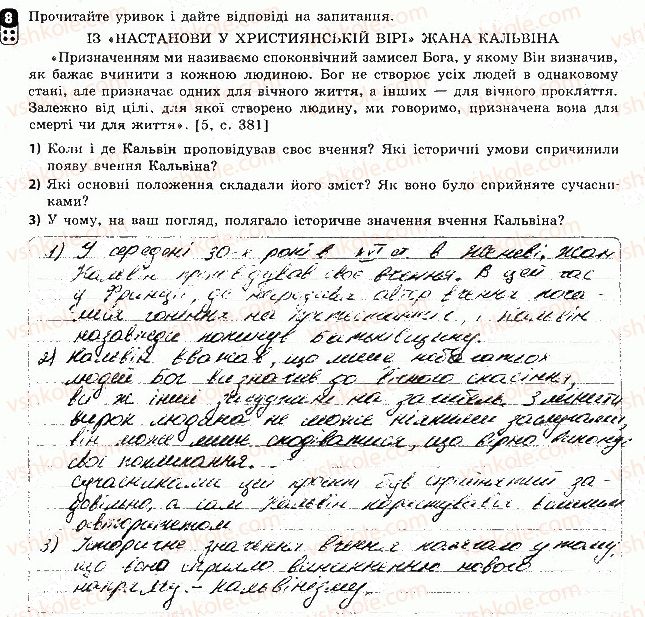 8 Прочитайте уривок і дайте відповіді на запитання.
ІЗ «НАСТАНОВИ У ХРИСТИЯНСЬКІЙ ВІРІ» ЖАНА КАЛЬВІНА
«Призначенням ми називаємо споконвічний замисел Бога, у якому Він визначив,
як бажає вчинити з кожною людиною. Бог не створює усіх людей в однаковому
стані, але призначає одних для вічного життя, а інших — для вічного прокляття.
Залежно від цілі, для якої створено людину, ми говоримо, призначена вона для
смерті чи для життя». [5, с. 381]
1) Коли і де Кальвін проповідував своє вчення? Які історичні умови спричинили
появу вчення Кальвіна?
2) Які основні положення складали його зміст? Як воно було сприйняте сучасни-
ками?
3) У чому, на ваш погляд, полягало історичне значення вчення Кальвіна?
1) У середені 30-х років XVI ст. в Женеві Жан
Кальвін проповідував своє вчення. В цей час
у Франції, де народився автор вчення поча-
лися гоніння на протестантів, і Кальвін
назавжди покинув Батьківщину.
2) Кальвін вважав, що лише небагатьох
людей Бог визначив до вічного спасіння,
всі ж інші засуджені на загибель. Змінити
вирок людина не може ніякими заслугами,
він може лише сподіватися, що вірно виконує
свої покликання.
Сучасниками цей проект був сприйнятий за-
довільно, а сам Кальвін користувався великим
авторитетом
3) Історичне значення вчення полягало у тому,
що вона сприяло виникненню нового
напрямку - кальвінізму.
vshkole.com